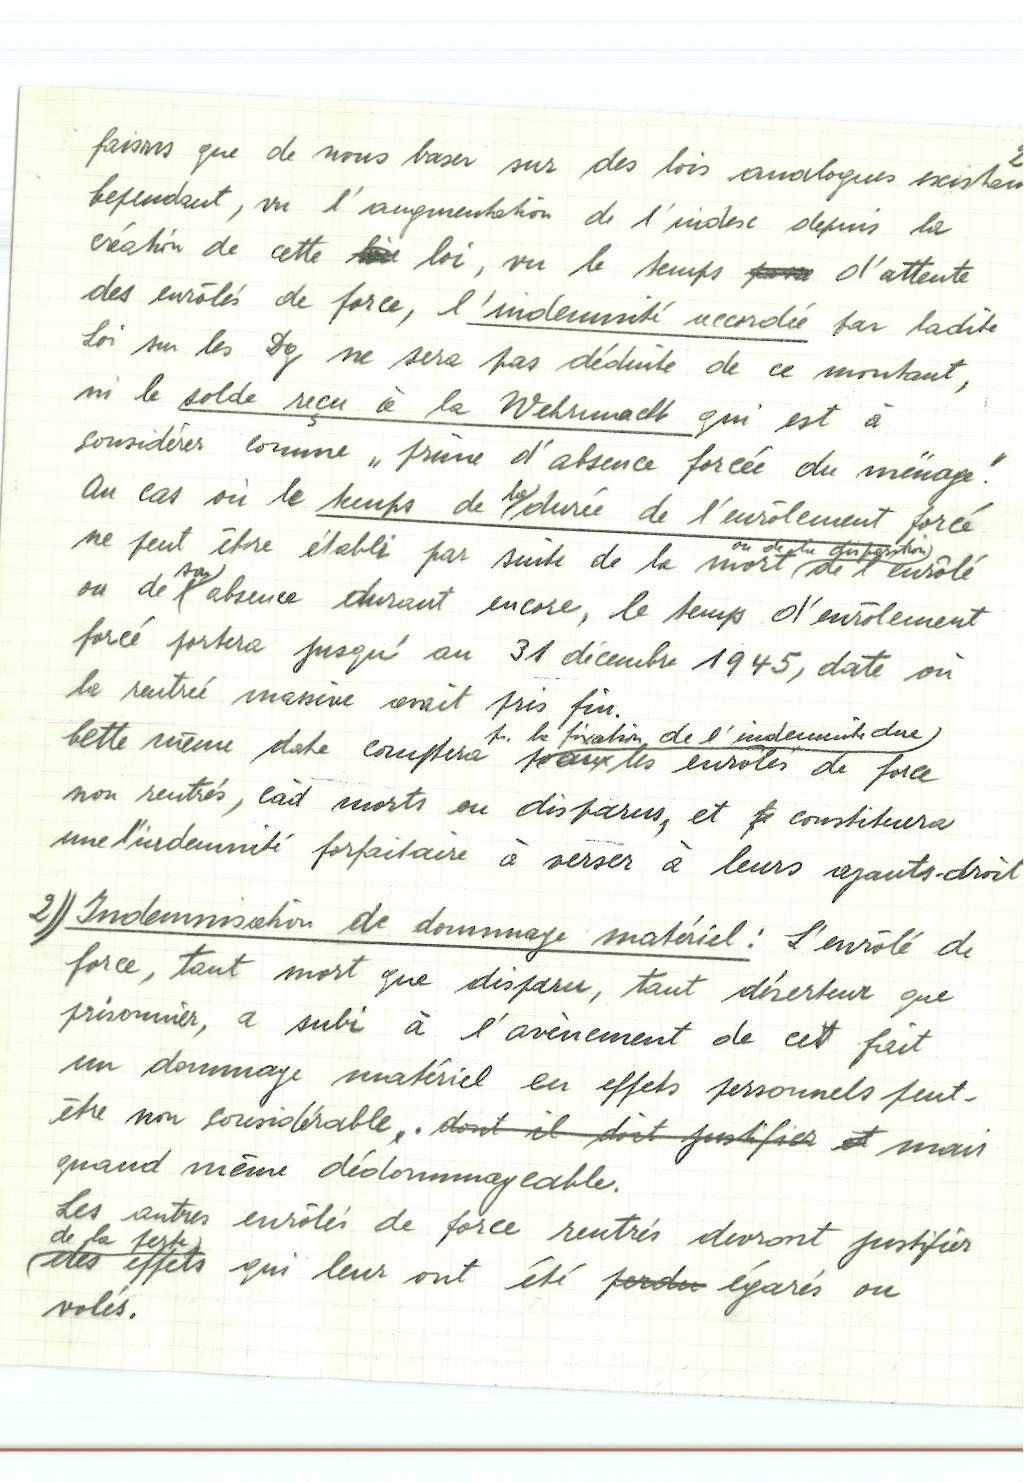 2
faisons que de nous baser sur des lois analogues existan
Cependant, vu l'augmentation de l'index depuis la
création de cette loi, vu le temps d'attente
des enrôlés de force, l'indemnité accordée par ladite
Loi sur les Dg ne sera pas déduite de ce montant,
ni le solde reçu à la Wehrmacht qui est à
considérer comme „prime d'absence forcée du ménage."
Au cas où le temps de la durée de l'enrôlement forcé
ou de la disparition
ne peut être établi par suite de la mort de l'enrôlé
ou de son absence durant encore, le temps d'enrôlement
forcé portera jusqu'au 31 décembre 1945, date où
la rentrée massive avait pris fin.
pr. la fixation de l'indemnité due
Cette même date comptera aux les enrôlés de force
non rentrés, càd morts ou disparus, et constituera
une l'indemnité forfaitaire à verser à leurs ayants-droit
2)) Indemnisation de dommage matériel: L'enrôlé de
force, tant mort que disparu, tant déserteur que
prisonnier, a subi à l'avènement de cet fait
un dommage matériel en effets personnels peut-
être non considérable, dont il doit justifier et mais
quand même dédommageable.
Les autres enrôlés de force rentrés devront justifier
de la perte
des effets qui leur ont été perdu égarés ou
volés.